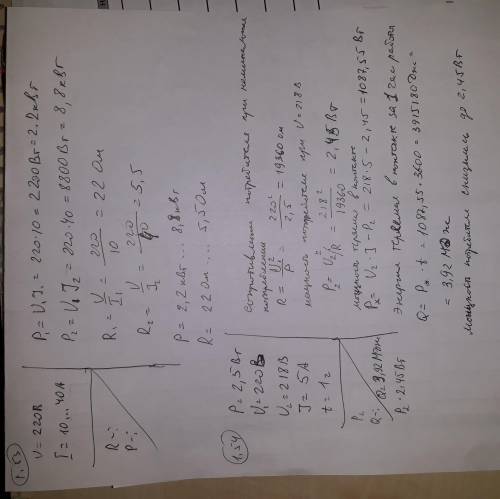 1.53
U = 220В
I = 10...40А
R - ?
P - ?
P₁ = U₁I₁ = 220·10 = 2200Вт = 2.2кВт
P₂ = U₁I₂ = 220·40 = 8800Вт = 8,8кВт
R₁ = U/I₁ = 220/10 = 22 Ом
R₂ = U/I₂ = 220/40 = 5,5
P = 2,2кВт ... 8,8кВт
R = 22 Ом ... 5,5 Ом
1.54
P = 2,5Вт
U₁ = 220В
U₂ = 218В
I = 5А
t = 1ч
P₂
Q - ? Q = 3,92МДж
P₂ = 2.45Вт
Сопротивление потребителя при номинальном
потреблении
R = U₁²/P = 220²/2,5 = 19360 ом
мощность потребителя при U = 218В
P₂ = U₂²/R = 218²/19360 = 2,45Вт
мощность теряемая в контакте
Pₓ = U₂·I - P₂ = 218·5 - 2,45 = 1087,55Вт
Энергия теряемая в контакте за 1 час работы
Q = Pₓ·t = 1087,55·3600 = 3915180Дж =
= 3,92 МДж
Мощность потребителя снизилась до 2,45Вт